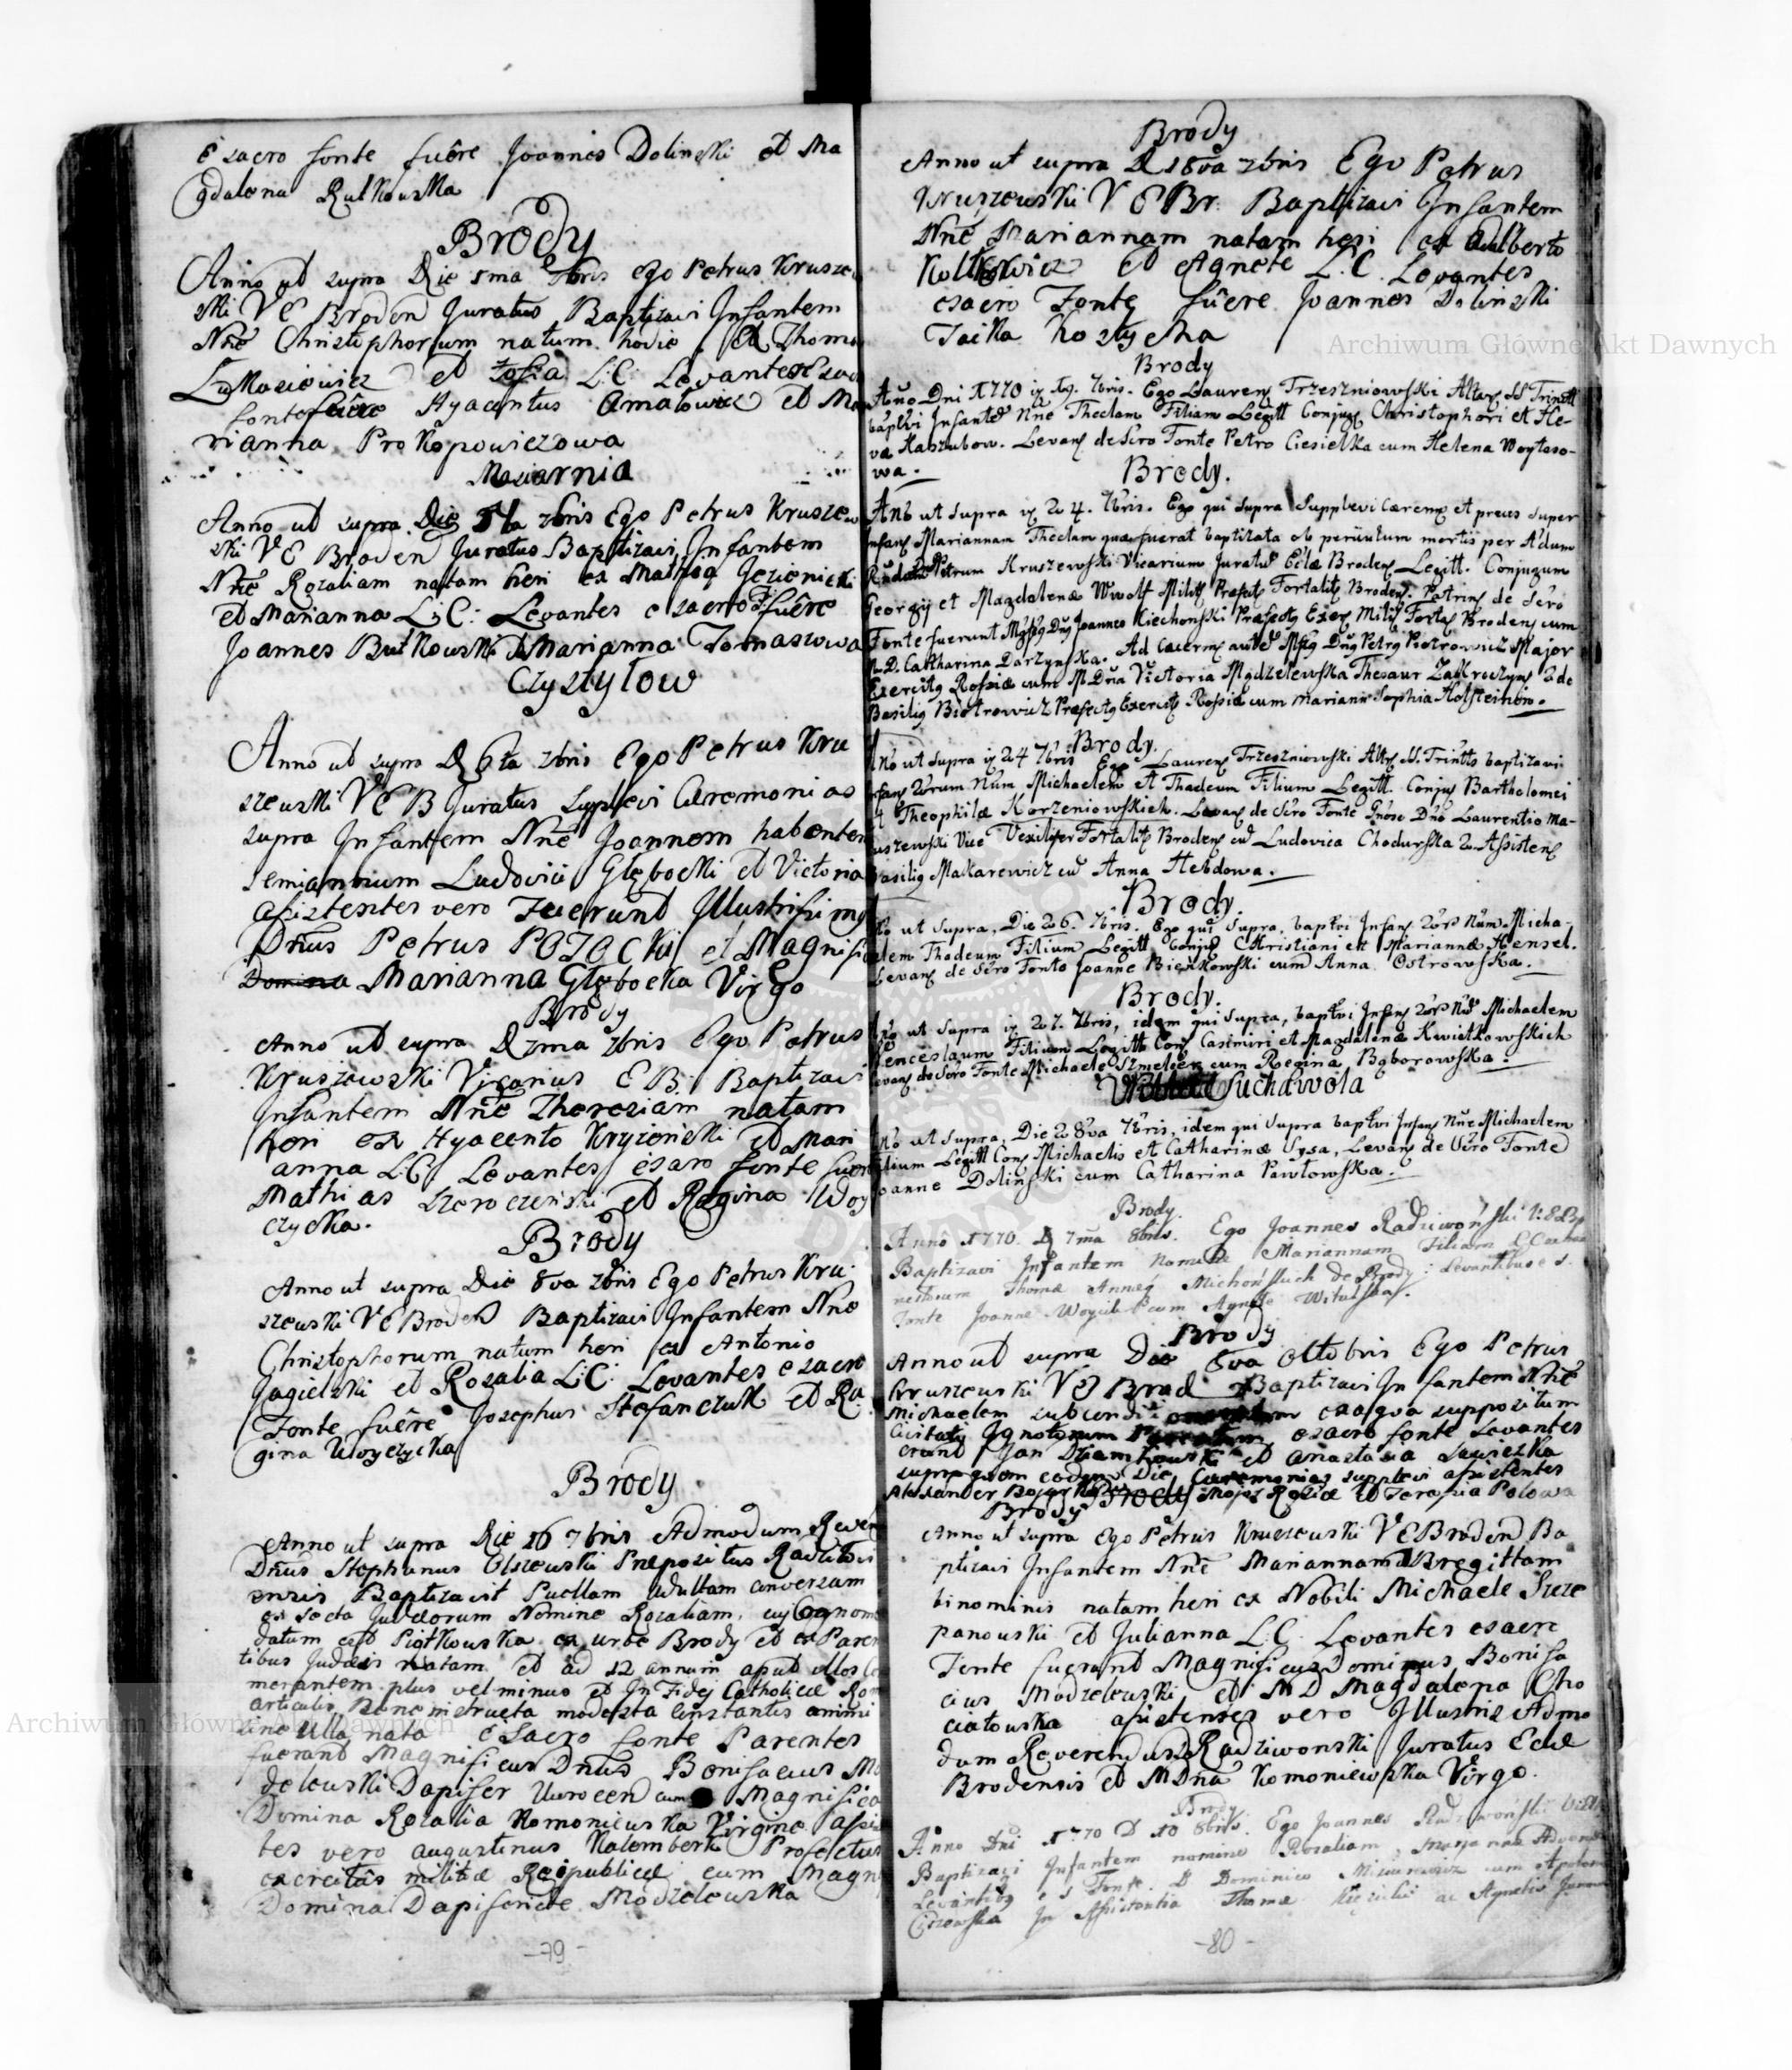 e sacro fonte fuêre Joannes Dolinski et Ma
gdalena Rutkowska
Brody
Anno ut supra Die 5ma 7bris ego Petrus Krusze
ski V E Broden Juratus Baptizavi Infantem
Nñe Christophorum natum hodie ex Thoma
et Zofia L: C: Levantes e sac
fonte fuêre Hyacintus Amatowicz et Ma
rianna Prokopowiczowa
Maziarnia
Anno ut supra Die 5ta 7bris Ego Petrus Krusze
ski V E Broden Juratus Baptizavi Infantem
Nñe Rozaliam natam heri ex Mathia Jezienicki
et Marianna L: C: Levantes e sacro F fuêre
Joannes Butkowski et Marianna Tomaszowa
Czystylow
Anno ut supra D 6ta 7bris Ego Petrus Kru
szewski V E B Juratus Supplevi Ceremonias
supra Infantem Nñe Joannem habentem
semiannum Ludovici Głębocki et Victoria
Asistentes vero fuerunt Illustrissimus
Dñus Petrus POTOCKij et Magnifi
Domina Marianna Głębocka Virgo
Brody
Anno ut supra D 7ma 7bris Ego Petrus
Kruszewski Vicarius E B: Baptizavi
Infantem Nñe Theresiam natam
heri ex Hyacento Kryzenicki et Mari
anna L: C: Levantes e sacro fonte fuer
Mathias et Regina Woy
czycka.
Brody
Anno ut supra Die 8va 7bris Ego Petrus Kru
szewski V E Broden Baptizavi Infantem Nñe
Christophorum natum heri ex Antonio
Jagielski et Rozalia L: C: Levantes e sacro
Fonte fuêre Josephus Stefanczuk et Re
gina Woyczycka
Brody
Anno ut supra Die 16 7bris Admodum Rever
Dñus Stephanus Olszewski Prepozitus Radzivi
ensis Baptizavit Puellam Adultam conversam
ex secta Judeorum Nomine Rozaliam, cuj Cognom
datum est Piotkowska ex urbe Brody et ex Paren
tibus Judeis natam et ad 12 annum aput illos
morantem plus vel minus et In Fidej Catholicæ Rom
articulis bene instructa modesta Constantis animi
sine ulla nata E sacro fonte Parentes
fuerunt Magnificus Dñus Bonifacius Mo
delewski Dapifer cum Magnifica
Domina Rozalia Komoniewska Virgine Assis
tes vero Augustinus Kalemberk Profectus
exercitûs militiæ Reipublicæ cum Magn
Domina Dapiferide Modzelewska
-79-
Brody
Anno ut supra D 18va 7bris Ego Petrus
Kruszewski V E Br: Baptizavi Infantem
Nñe Mariannam natam heri ex Adalberto
et Agnete L: C: Levantes
e sacro Fonte fuêre Joannes Dolinski
Tacka Kostycha
Brody
Año Dni 1770 19. 7bris. Ego Lauren Trzeszniowski Altar SS Trinitt
baptvi Infantē Nñe Theclam Filiam Legitt Conjug Christophori et He-
va Kaszubow. Levan de Sčro Fonte Petro Ciesielka cum Helena Woytaso-
wa.
Brody.
Año ut Supra 24. 7bris. Ego qui supra Supplevi Cærem et preces super
infan Mariannam Theclam quæ fuerat baptizata ob periculum mortis per Adum
Petrum Kruszewski Vicarium Juratū Eclæ Broden Legitt. Conjugum
Georgij et Magdalenæ Wwolf Milit Præfect Fortalit Broden. Patrin de Sčro
Fonte fuerunt Joannes Kiechonski Præfect Exer Milit Fortal Broden cum
M. D. Catharina Darzynska. Ad Cærem autē Petrg Piotrowicz Major
Exercitg Rossiæ cum M Dña Victoria Modzelewska Thesaur Zakroczyn 2do
Basilig Piotrowicz Præfectg Exercitg Rossiæ cum Mariann Sophia Holsteinow.
Brody.
Año ut Supra 24 7bris Ego Lauren Trzeszniowski Altr SS. Trinitts baptizavi
Infan 2orum Num Michaelem et Thadeum Filium Legitt. Conjug Bartholomei
et Theophilæ Korzeniowskich. Levan de Sčro Fonte Gnoso Dño Laurentio Ma-
uszewski Vice Vexilifer Fortalit Broden cū Ludovica Chodurska 2. Assisten
Basilig Makarewicz cū Anna Hebdowa.
Brody.
Año ut Supra, Die 26. 7bris. Ego qui Supra, baptvi Infan 2or Num Micha-
elem Thadeum Filium Legitt Conjug Christiani et Mariannæ Hensel.
Levan de Sčro Fonte Joanne Bieńkowski cum Anna Ostrowska.
Brody.
Año ut Supra 27. 7bris, idem qui Supra, baptvi Infan 2or Nū Michaelem
Venceslaum Filium Legitt Conj Casimiri et Magdalenæ Kwiatkowskich
Levan de Sčro Fonte Michaele Szmelcer cum Regina Bąborowska.
Suchawola
Año ut Supra, Die 28va 7bris, idem qui Supra baptvi Infan Nñe Michaelem
Filium Legitt Conj Michaelis et Catharinæ Sysa, Levan de Sčro Fonte
Joanne Doliński cum Catharina Pawłowska.
Brody.
Anno 1770. D 7ma 8bris. Ego Joannes Radziwoński V: E B
Baptizavi Infantem Nomine Mariannam Filiam
Thomæ Annæ Michońskich de Brody: Levantibus e S.
Fonte Joanne Woycik cum Agnete Witulska.
Brody
Anno ut supra Die 8va Octobris Ego Petrus
Kruszewski V E Brod Baptizavi Infantem Nñe
Michaelem sub condi exaqua suppozitum
Civitati Ignotorum e sacro fonte Levantes
erant Jan et Anastasia Sawiczka
supra quem eodem Die Ceremonias supplevi asistentes
Alexander Major Rosiæ et Terassia Polowa
Brody
Anno ut supra Ego Petrus Kruszewski V E Broden Ba
ptizavi Infantem Nñe Mariannam Bregittam
binominis natam heri ex Nobili Michaele Szcze
panowski et Julianna L: C: Levantes e sacro
Fonte fuerunt Magnificus Dominus Bonifa
cius Modzelewski et M D Magdalena Cho
ciatowska asistentes vero Illustris Admo
dum Reverendus Radziwonski Juratus Eclæ
Brodensis et M Dña Komoniewska Virgo.
Brody.
Anno Dni 1770 D 10 8bris. Ego Joannes Radziwoński
Baptizavi Infantem nomine Rozaliam, Marianna
Levantibg e S Fonte. D Dominico cum
In Assistentia Thomæ ac Agnetis
-80-
Archiwum Główne Akt Dawnych
Archiwum Główne Akt Dawnych